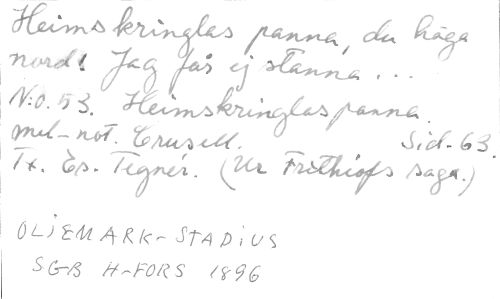 Heimskringlas panna, du höga
nord! Jag får ej stanna...
N:o. 53. Heimskringlas panna.
mel-not. Crusell. Sid. 63.
Tx. Es. Tegnér. (Ur Frithiofs saga.)
OLJEMARK-STADIUS
SGB H-FORS 1896